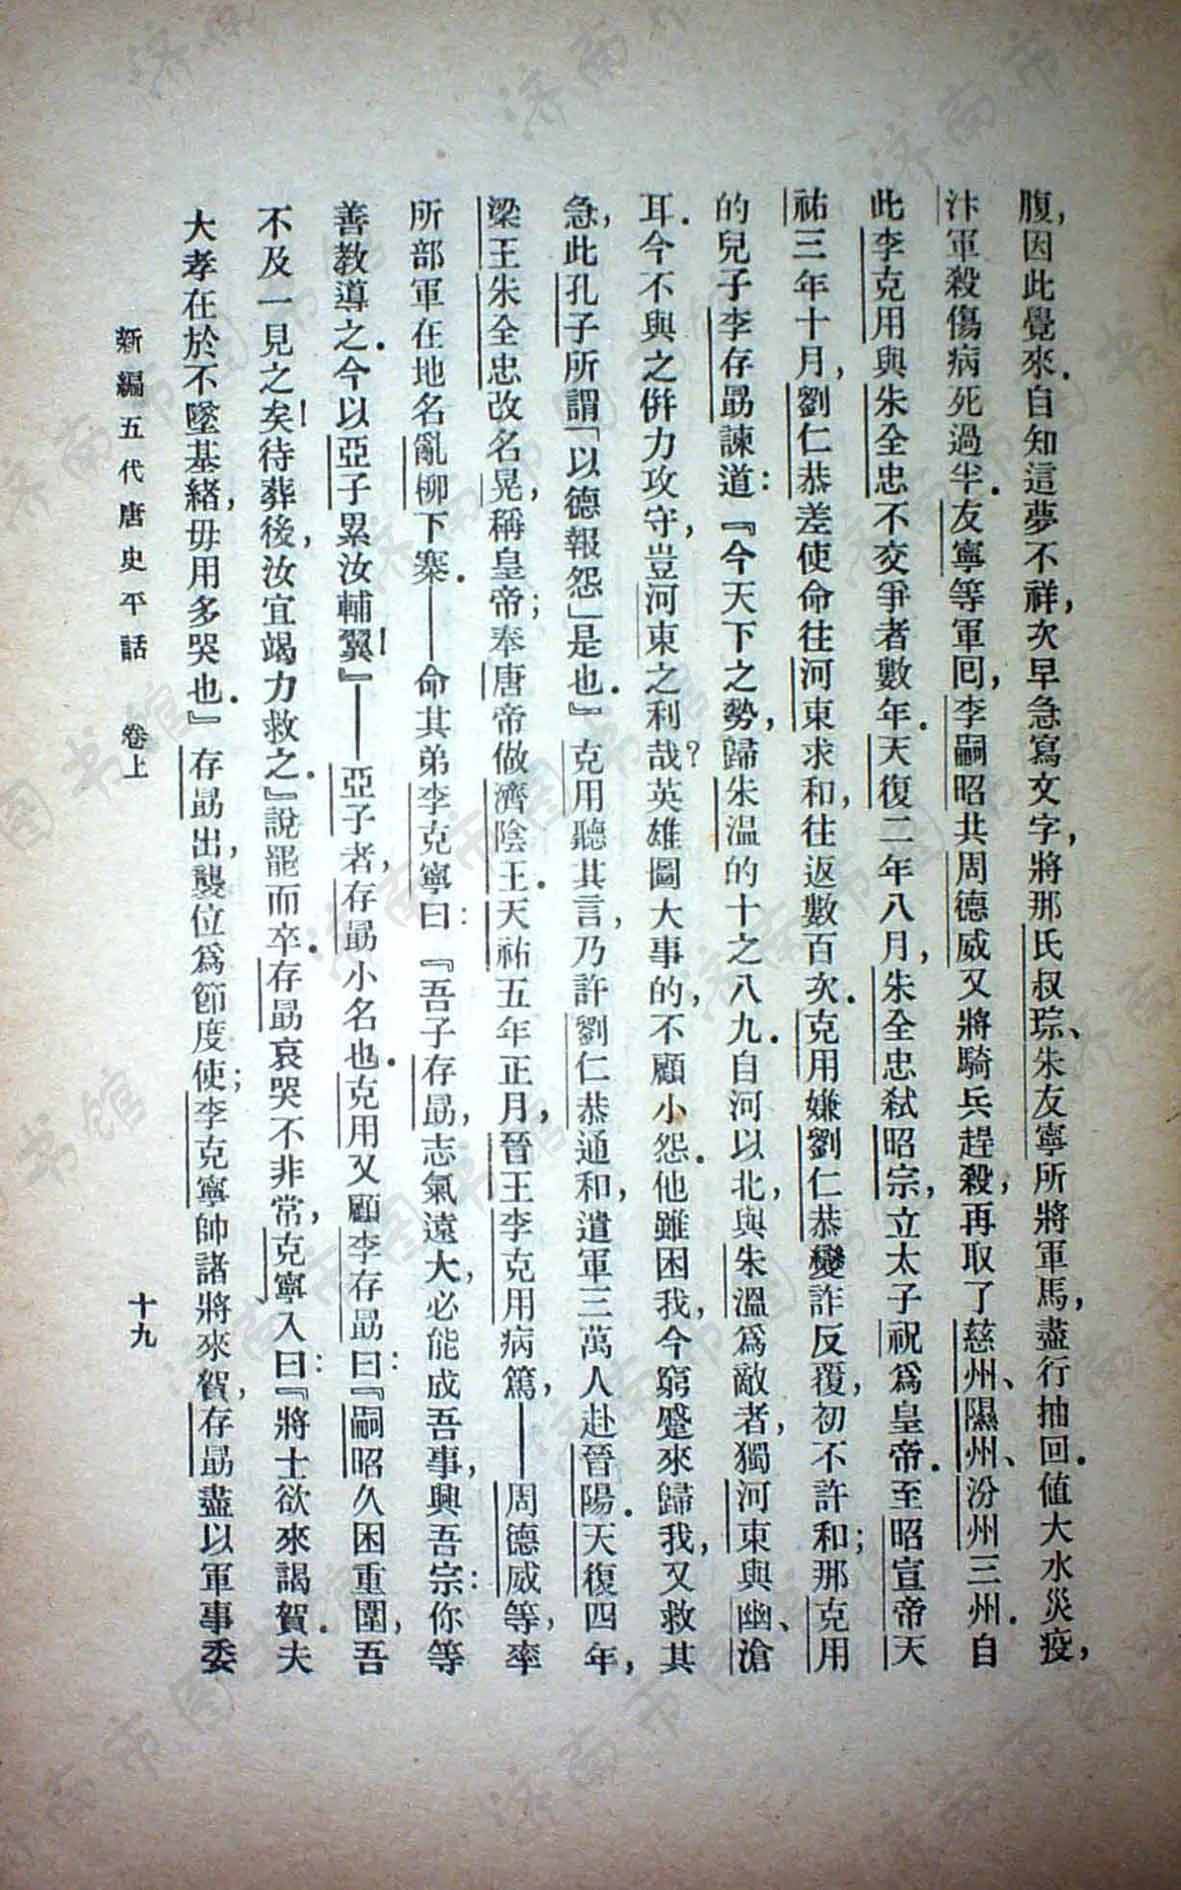 腹，因此覺來．自知這夢不祥，次早急寫文字，將那氏叔琮、朱友寧所將軍馬，盡行抽回．值大水災疫，
汴軍殺傷病死過半．友寧等軍囘，李嗣昭共周德威又將騎兵趕殺，再取了慈州、隰州、汾州三州．自
此李克用與朱全忠不交爭者數年．天復二年八月，朱全忠弒昭宗，立太子祝爲皇帝．至昭宣帝天
祐三年十月，劉仁恭差使命往河東求和，往返數百次．克用嫌劉仁恭變詐反覆，初不許和；那克用
的兒子李存勗諫道：『今天下之勢，歸朱温的十之八九．自河以北，與朱溫爲敵者，獨河東與幽、滄
耳．今不與之併力攻守，豈河東之利哉？英雄圖大事的，不顧小怨．他雖困我，今窮蹙來歸我，又救其
急，此孔子所謂「以德報怨」是也．』克用聽其言，乃許劉仁恭通和，遣軍三萬人赴晉陽．天復四年，
梁王朱全忠改名晃，稱皇帝；奉唐帝做濟陰王．天祐五年正月，晉王李克用病篤，——周德威等，率
所部軍在地名亂柳下寨．——命其弟李克寧曰：『吾子存勗，志氣遠大，必能成吾事，興吾宗：你等
善教導之．今以亞子累汝輔翼！』——亞子者，存勗小名也．克用又顧李存勗曰：『嗣昭久困重圍，吾
不及一見之矣！待葬後，汝宜竭力救之．』說罷而卒．存勗哀哭不非常，克寧入曰：『將士欲來謁賀．夫
大孝在於不墜基緒，毋用多哭也．』存勗出，襲位爲節度使；李克寧帥諸將來賀，存勗盡以軍事委
新編五代唐史平話　卷上　十九
济南市图书馆